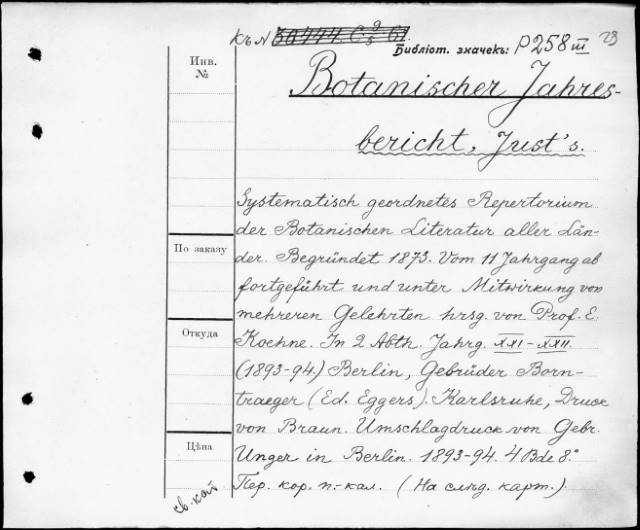 Къ N 38444. C 9/5 61.
Библіот. значекъ: P258 III
23
Инв. №
Botanischer Jahres-
bericht, Just's.
Systematisch geordnetes Repertorium
der Botanischen Literatur aller Län-
По заказу
der. Begründet 1873. Vom 11 Jahrgang ab
fortgeführt und unter Mitwirkung von
mehreren Gelehrten hrsg. von Prof. E.
Откуда
Koehne. In 2 Abth. Jahrg. XXI-XXII.
(1893-94.) Berlin, Gebrüder Born-
traeger (Ed. Eggers). Karlsruhe, Druck
von Braun. Umschlagdruck von Gebr.
Цѣна
Unger in Berlin. 1893-94. 4 Bde 8.°
Пер. кор. п.-кал. (На слѣд. карт.).